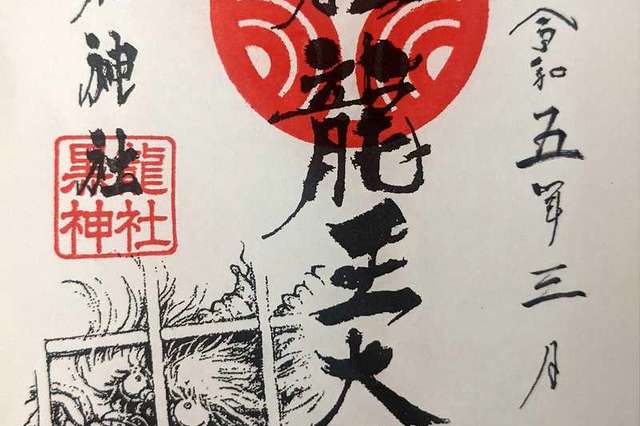 令和五年三月
龍王大
神社
黒龍
神社